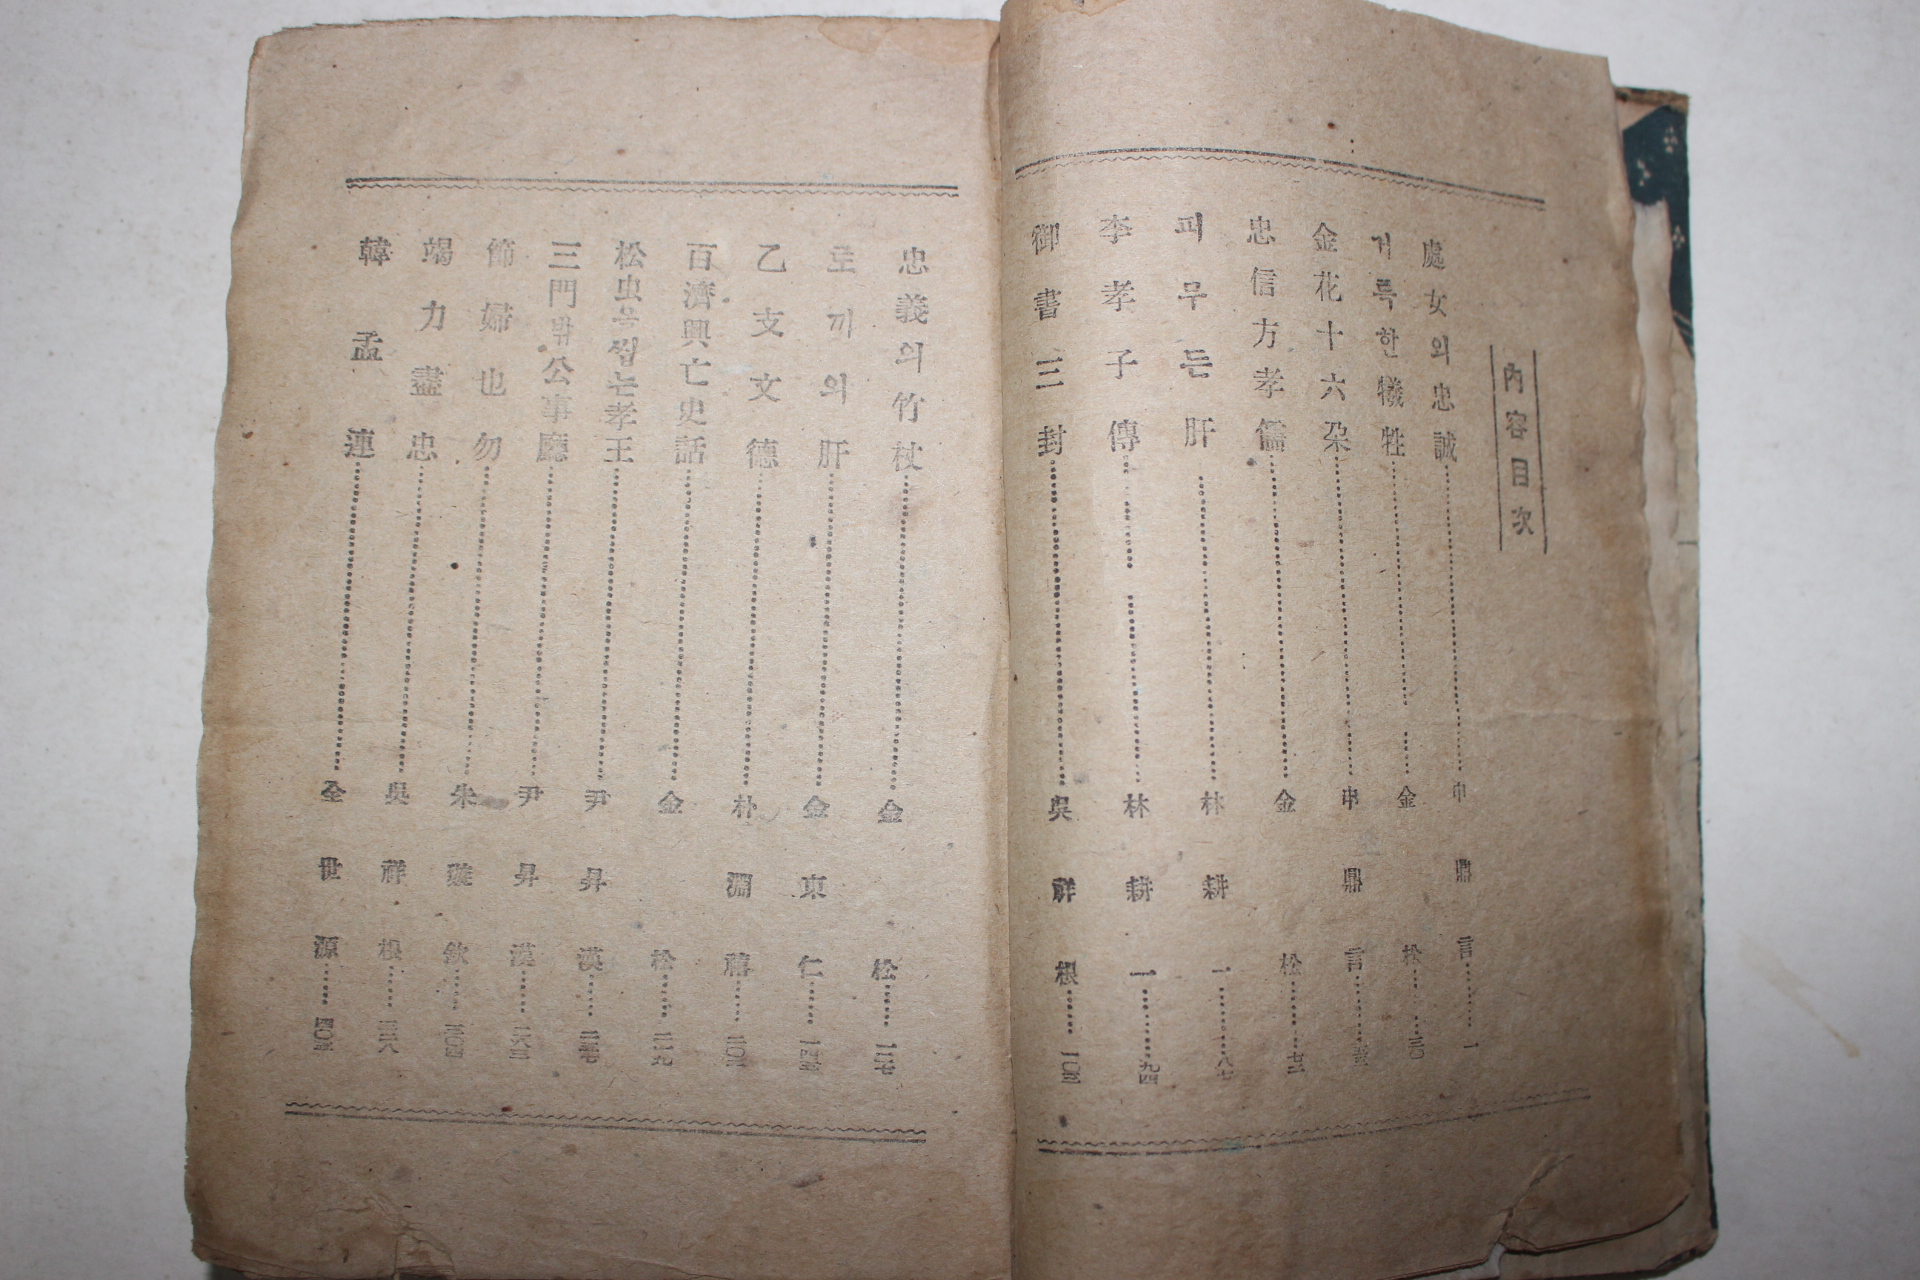 內容目次
處女의忠誠 申鼎言 一
거륵한犧牲 金松 三〇
金花十六朶 申鼎言
忠信方孝儒 金松 七二
피무든肝 林耕一 八七
李孝子傳 林耕一 九四
御書三封 吳祥根 一〇三
忠義의竹杖 金松 一二七
토끼의肝 金東仁 一四五
乙支文德 朴淵禧 二〇三
百濟興亡史話 金松 二一九
松虫을씹는孝王 尹昇漢 二三七
三門밖公事廳 尹昇漢 二六三
節婦也勿 朱璇欽 三〇四
竭力盡忠 吳祥根 三二八
韓孟連 全世源 四〇三